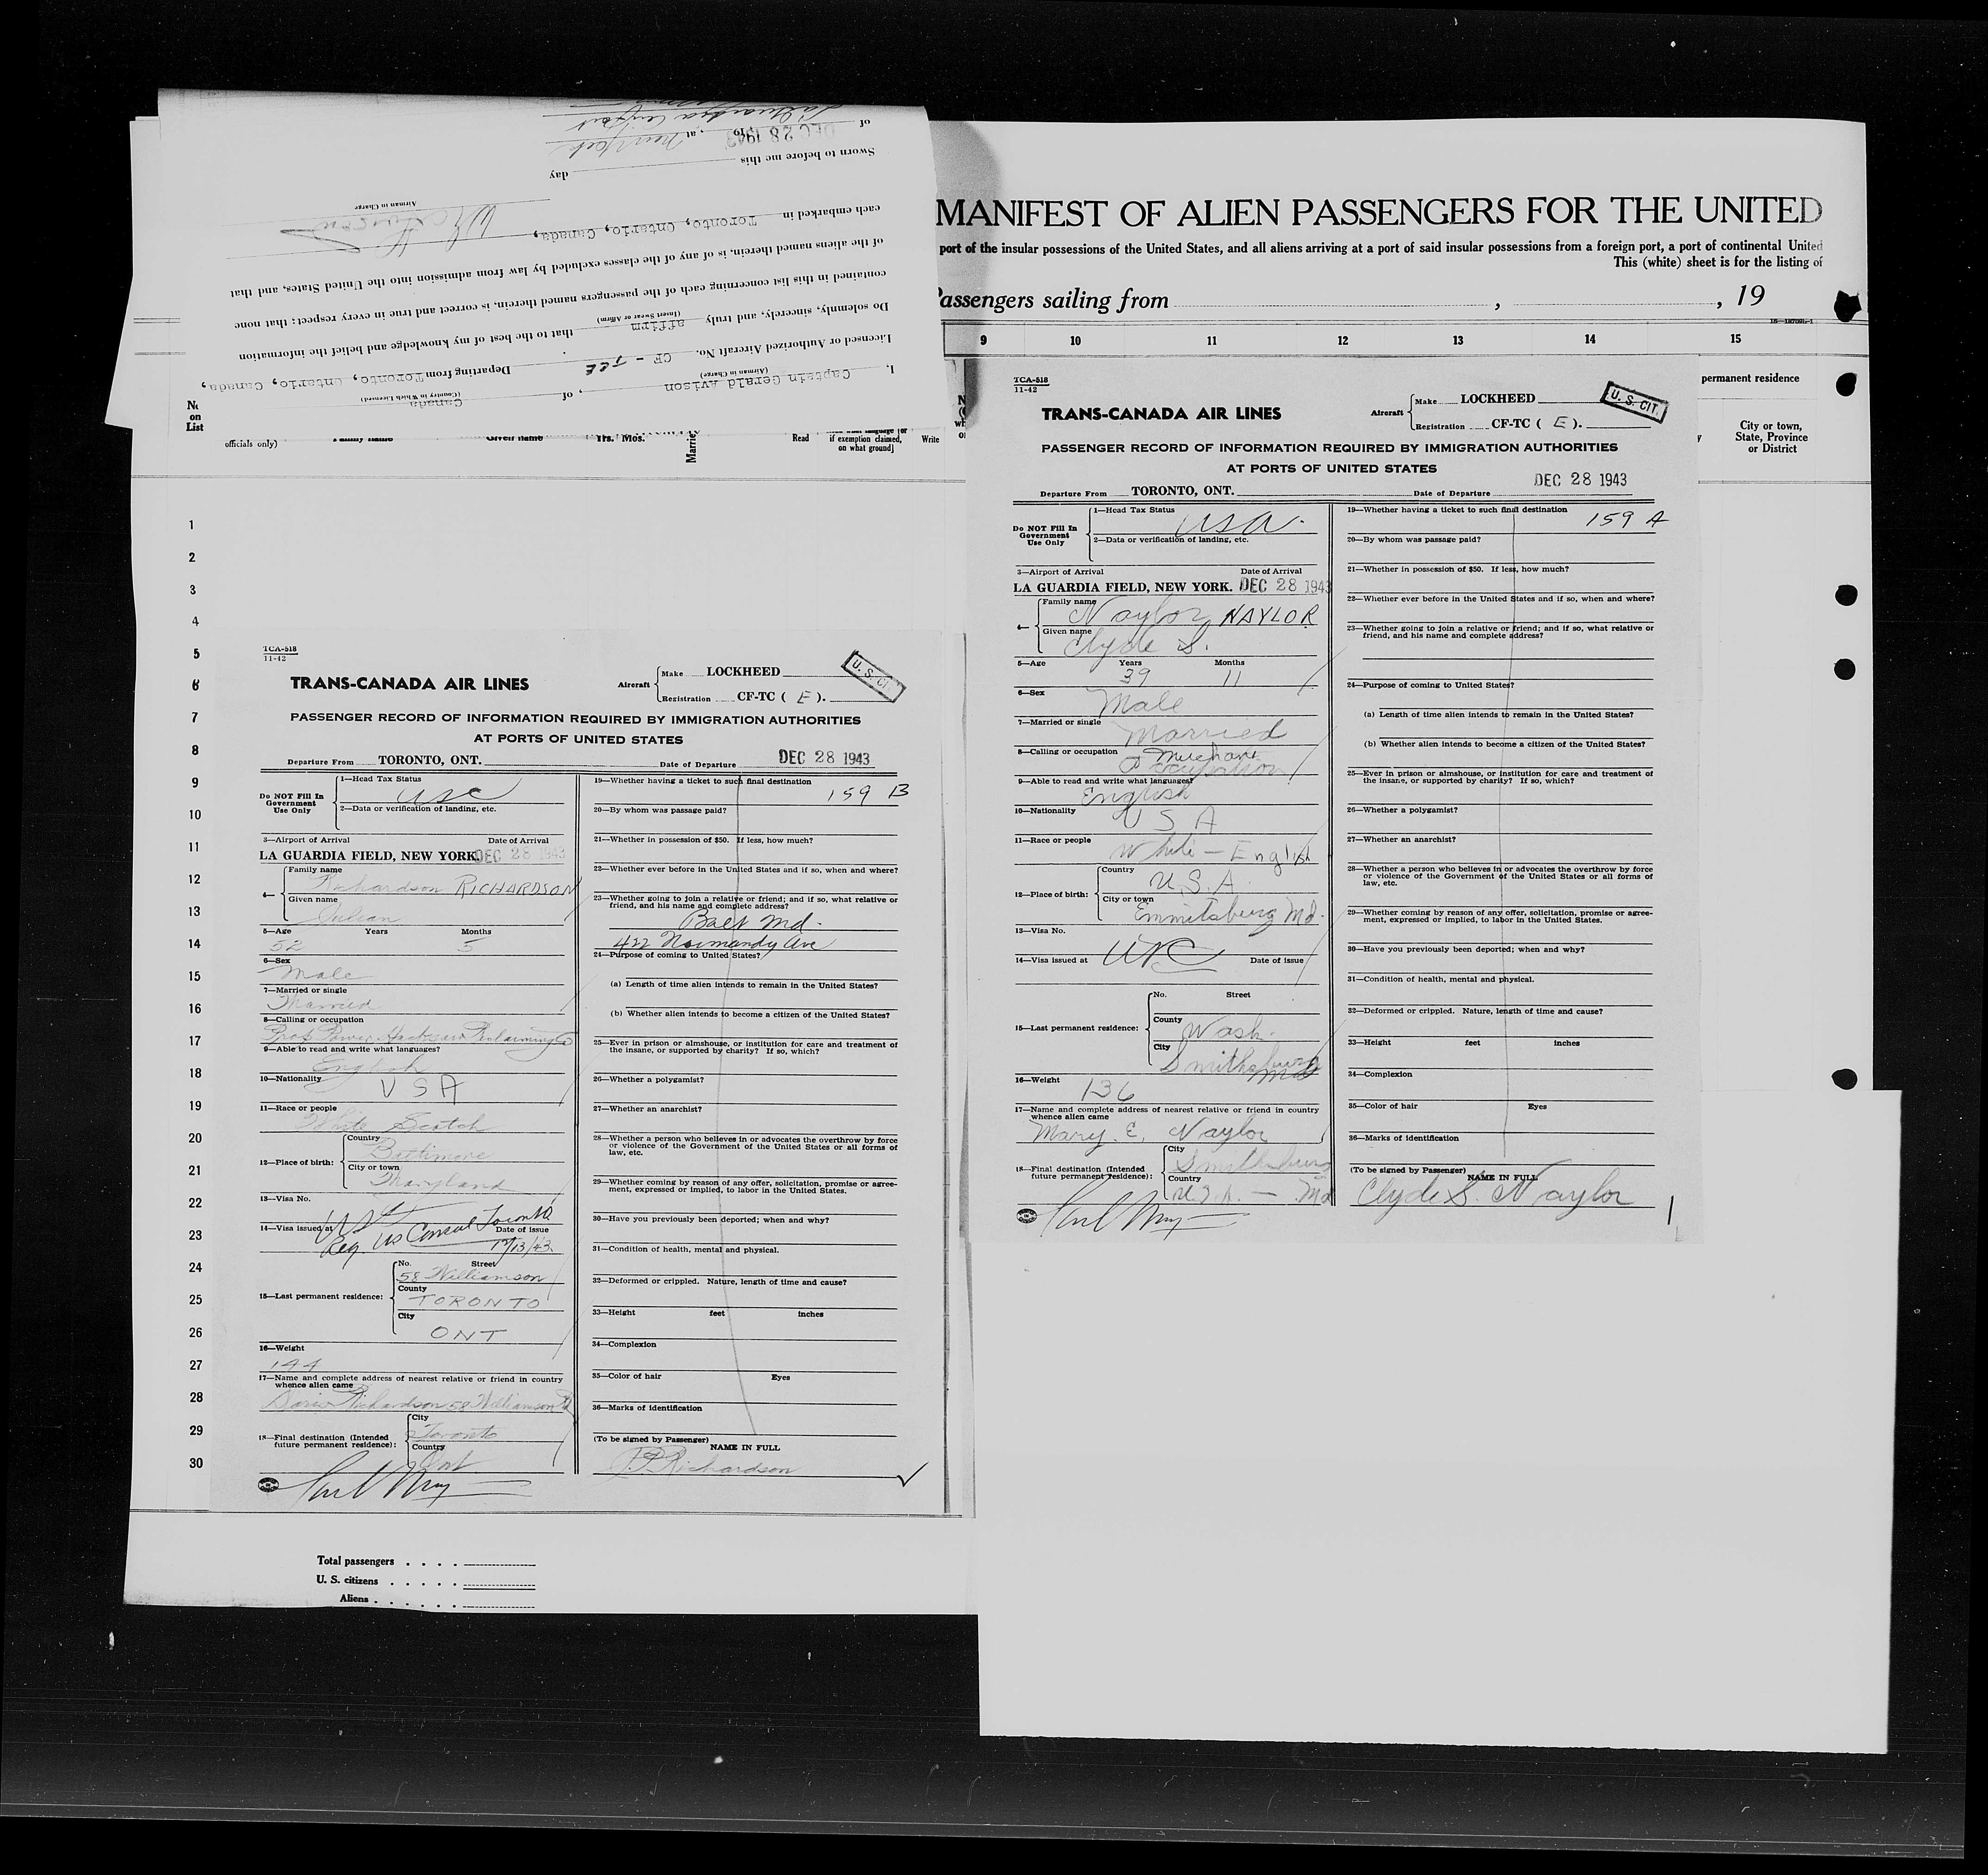 I, Captain Gerald Avison, of Canada
(Airman in Charge) (Country in Which Licensed)
Licensed or Authorized Aircraft No. CF - TCE Departing from Toronto, Ontario, Canada,
Do solemnly, sincerely, and truly affirm that to the best of my knowledge and belief the information
(Insert Swear or Affirm)
contained in this list concerning each of the passengers named therein, is correct and true in every respect; that none
of the aliens named therein, is of any of the classes excluded by law from admission into the United States, and that
each embarked in Toronto, Ontario, Canada,
Airman in Charge
Sworn to before me this day
of DEC 28 1943 19 , at New York
on
List
officials only)
Family name
Given name
Yrs. Mos.
Read
if exemption claimed,
on what ground]
Write
1
2
3
4
5
6
7
8
9
10
11
12
13
14
15
16
17
18
19
20
21
22
23
24
25
26
27
28
29
30
TCA-518
11-42
TRANS-CANADA AIR LINES
Aircraft
Make LOCKHEED
Registration CF-TC ( E ).
U. S. CIT.
PASSENGER RECORD OF INFORMATION REQUIRED BY IMMIGRATION AUTHORITIES
AT PORTS OF UNITED STATES
Departure From TORONTO, ONT. Date of Departure DEC 28 1943
Do NOT Fill In
Government
Use Only
1—Head Tax Status
usc
2—Data or verification of landing, etc.
3—Airport of Arrival Date of Arrival
LA GUARDIA FIELD, NEW YORK. DEC 28 1943
4—
Family name
Richardson RICHARDSON
Given name
Julian
5—Age Years Months
52 5
6—Sex
Male
7—Married or single
Married
8—Calling or occupation
9—Able to read and write what languages?
English
10—Nationality
USA
11—Race or people
White Scotch
12—Place of birth:
Country
Baltimore
City or town
Maryland
13—Visa No.
14—Visa issued at Date of issue
Reg. US Consul Toronto
12/13/43
15—Last permanent residence:
No. Street
58 Williamson
County
TORONTO
City
ONT
16—Weight
144
17—Name and complete address of nearest relative or friend in country
whence alien came
Richardson 58 Williamson Rd
18—Final destination (Intended
future permanent residence):
City
Toronto
Country
Ont
19—Whether having a ticket to such final destination
159 B
20—By whom was passage paid?
21—Whether in possession of $50. If less, how much?
22—Whether ever before in the United States and if so, when and where?
23—Whether going to join a relative or friend; and if so, what relative or
friend, and his name and complete address?
Balt Md.
422 Normandy Ave
24—Purpose of coming to United States?
(a) Length of time alien intends to remain in the United States?
(b) Whether alien intends to become a citizen of the United States?
25—Ever in prison or almshouse, or institution for care and treatment of
the insane, or supported by charity? If so, which?
26—Whether a polygamist?
27—Whether an anarchist?
28—Whether a person who believes in or advocates the overthrow by force
or violence of the Government of the United States or all forms of
law, etc.
29—Whether coming by reason of any offer, solicitation, promise or agree-
ment, expressed or implied, to labor in the United States.
30—Have you previously been deported; when and why?
31—Condition of health, mental and physical.
32—Deformed or crippled. Nature, length of time and cause?
33—Height feet inches
34—Complexion
35—Color of hair Eyes
36—Marks of identification
(To be signed by Passenger)
NAME IN FULL
Richardson
Total passengers
U. S. citizens
Aliens
MANIFEST OF ALIEN PASSENGERS FOR THE UNITED
port of the insular possessions of the United States, and all aliens arriving at a port of said insular possessions from a foreign port, a port of continental United
This (white) sheet is for the listing of
Passengers sailing from , , 19
9 10 11 12 13 14 15
permanent residence
City or town,
State, Province
or District
TCA-518
11-42
TRANS-CANADA AIR LINES
Aircraft
Make LOCKHEED
Registration CF-TC ( E ).
U. S. CIT.
PASSENGER RECORD OF INFORMATION REQUIRED BY IMMIGRATION AUTHORITIES
AT PORTS OF UNITED STATES
Departure From TORONTO, ONT. Date of Departure DEC 28 1943
Do NOT Fill In
Government
Use Only
1—Head Tax Status
USA.
2—Data or verification of landing, etc.
3—Airport of Arrival Date of Arrival
LA GUARDIA FIELD, NEW YORK. DEC 28 1943
4—
Family name
Naylor NAYLOR
Given name
Clyde S.
5—Age Years Months
39 11
6—Sex
Male
7—Married or single
Married
8—Calling or occupation
9—Able to read and write what languages?
English
10—Nationality
USA
11—Race or people
White — English
12—Place of birth:
Country
U.S.A.
City or town
Emmitsburg Md.
13—Visa No.
14—Visa issued at Date of issue
15—Last permanent residence:
No. Street
County
Wash.
City
Smithsburg Md
16—Weight
136
17—Name and complete address of nearest relative or friend in country
whence alien came
Mary E. Naylor
18—Final destination (Intended
future permanent residence):
City
Smithsburg
Country
U.S.A. — Md
19—Whether having a ticket to such final destination
159 A
20—By whom was passage paid?
21—Whether in possession of $50. If less, how much?
22—Whether ever before in the United States and if so, when and where?
23—Whether going to join a relative or friend; and if so, what relative or
friend, and his name and complete address?
24—Purpose of coming to United States?
(a) Length of time alien intends to remain in the United States?
(b) Whether alien intends to become a citizen of the United States?
25—Ever in prison or almshouse, or institution for care and treatment of
the insane, or supported by charity? If so, which?
26—Whether a polygamist?
27—Whether an anarchist?
28—Whether a person who believes in or advocates the overthrow by force
or violence of the Government of the United States or all forms of
law, etc.
29—Whether coming by reason of any offer, solicitation, promise or agree-
ment, expressed or implied, to labor in the United States.
30—Have you previously been deported; when and why?
31—Condition of health, mental and physical.
32—Deformed or crippled. Nature, length of time and cause?
33—Height feet inches
34—Complexion
35—Color of hair Eyes
36—Marks of identification
(To be signed by Passenger)
NAME IN FULL
Clyde S. Naylor